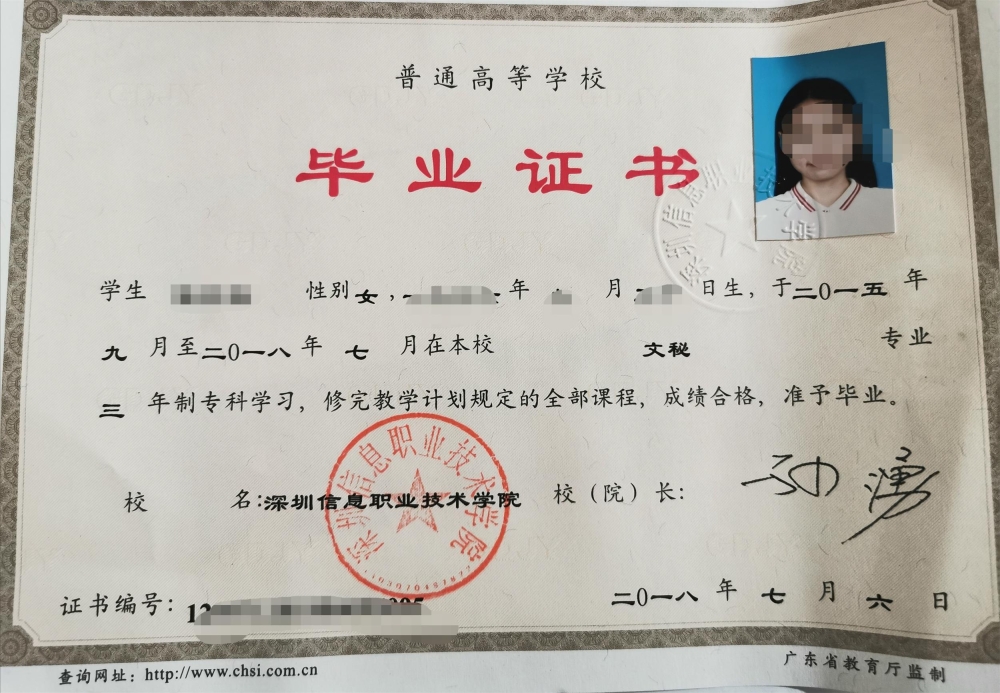 普通高等学校
毕业证书
学生 性别女, 年 月 日生,于二〇一五年
九月至二〇一八年七月在本校 文秘 专业
三年制专科学习,修完教学计划规定的全部课程,成绩合格,准予毕业。
校 名:深圳信息职业技术学院 校(院)长:
深圳信息职业技术学院
深圳信息职业技术学院
证书编号:
二〇一八年七月六日
查询网址:http://www.chsi.com.cn
广东省教育厅监制